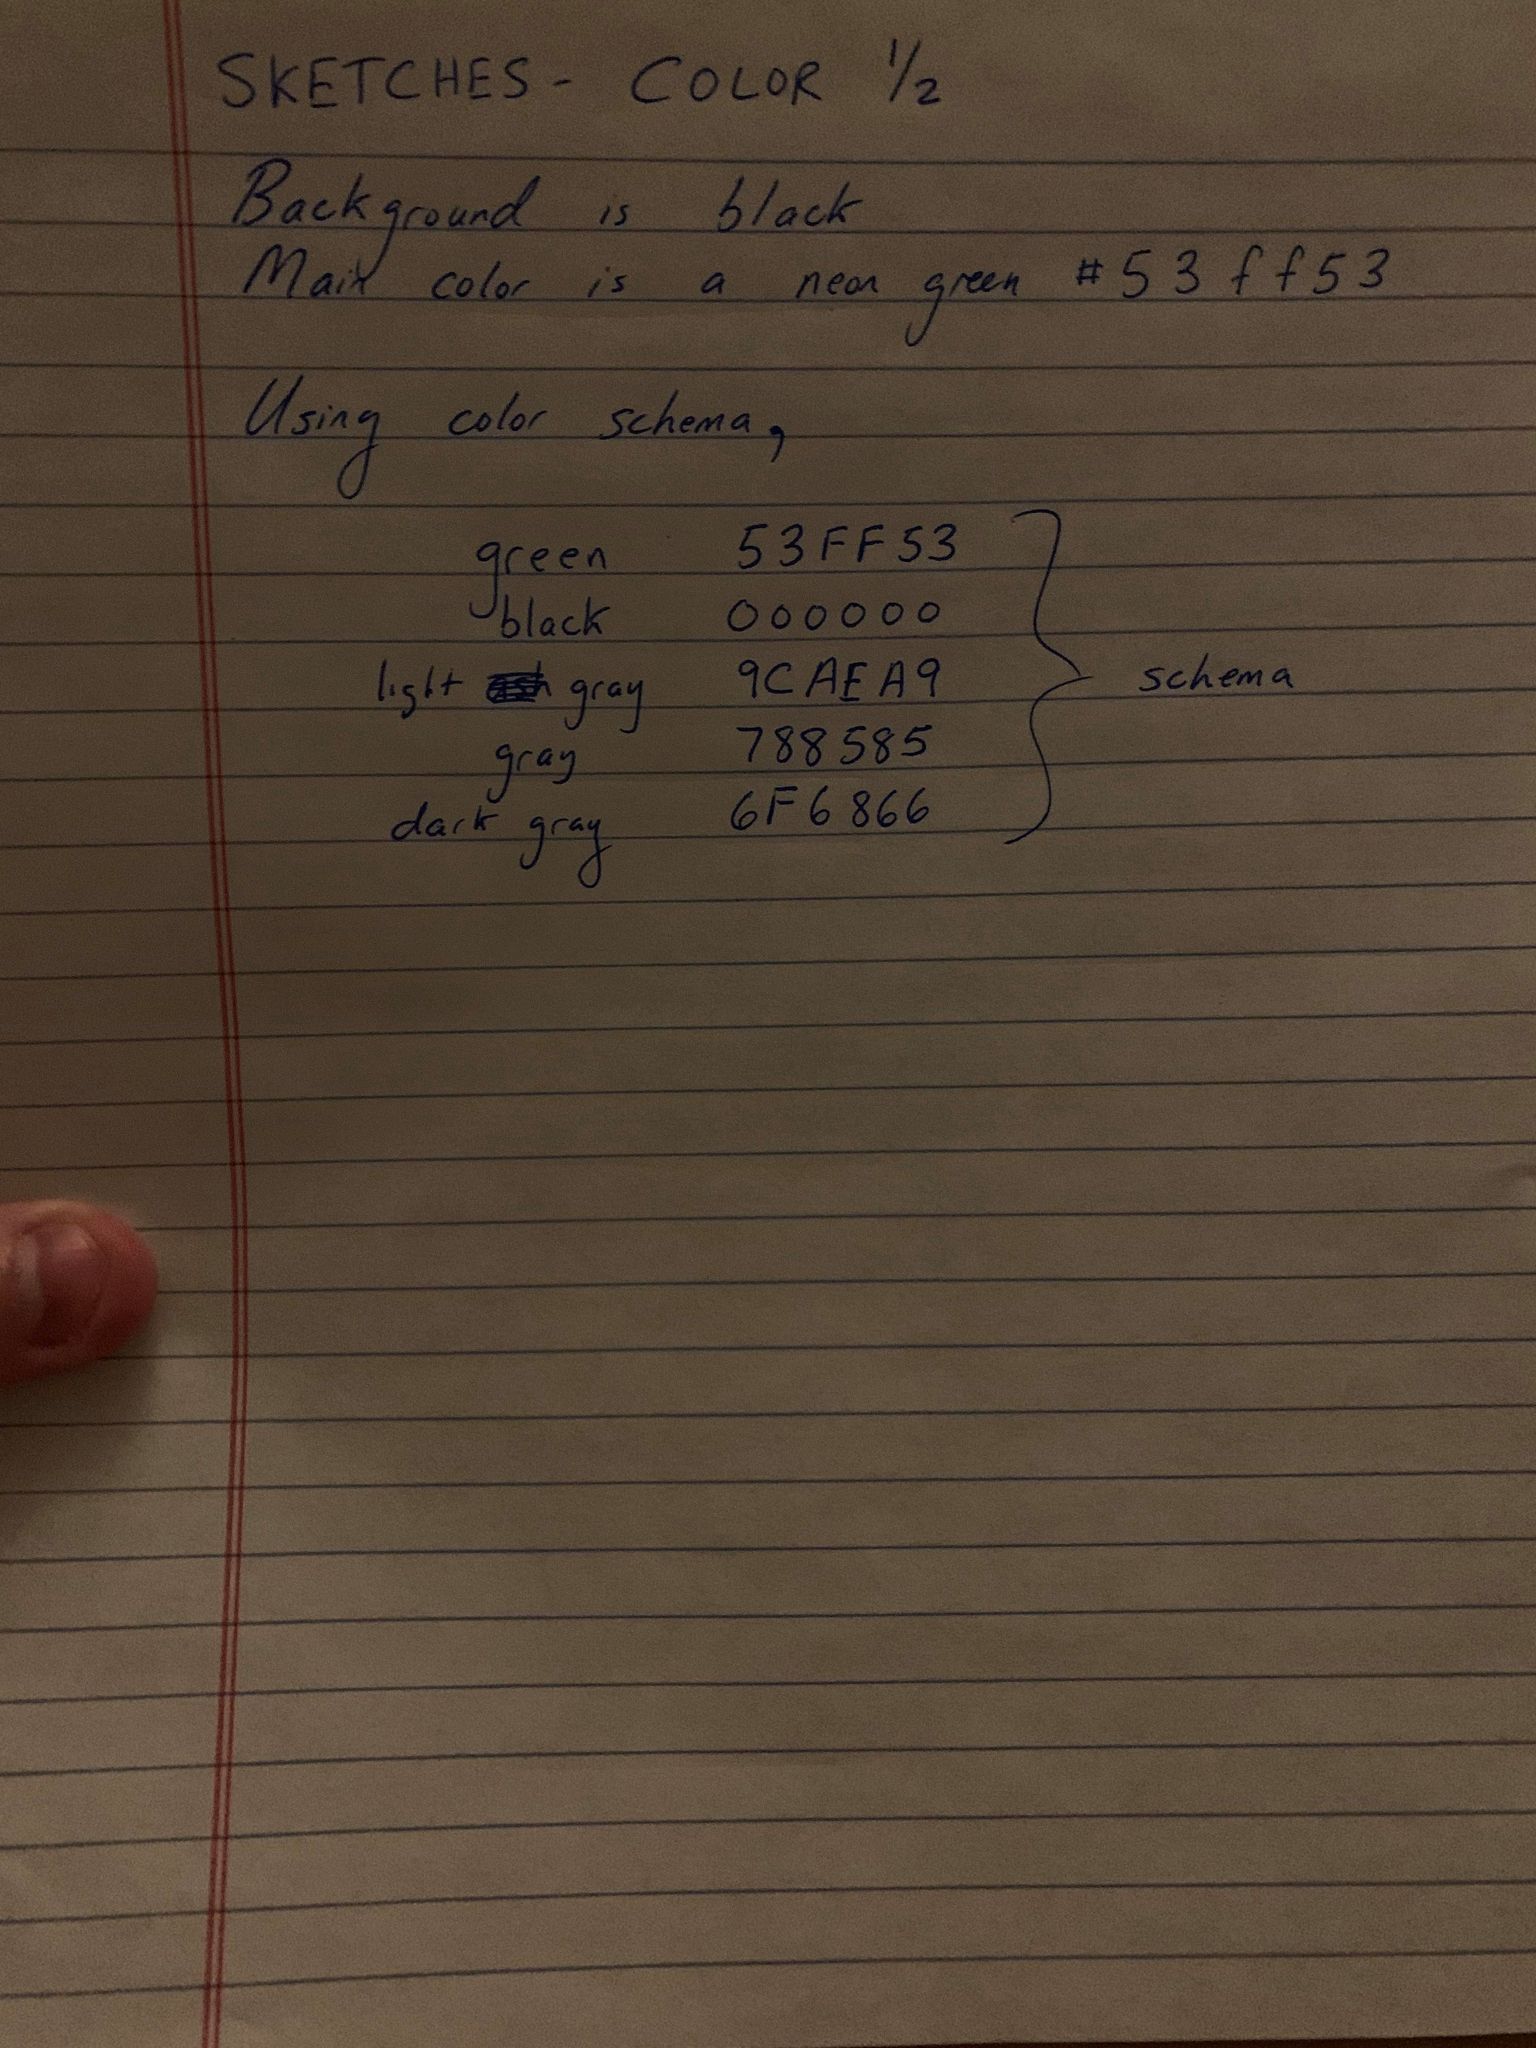 SKETCHES - COLOR 1/2
Background is black
Main color is a neon green #53ff53
Using color schema,
green 53FF53
black 000000
light gray 9CAEA9
gray 788585
dark gray 6F6866
schema